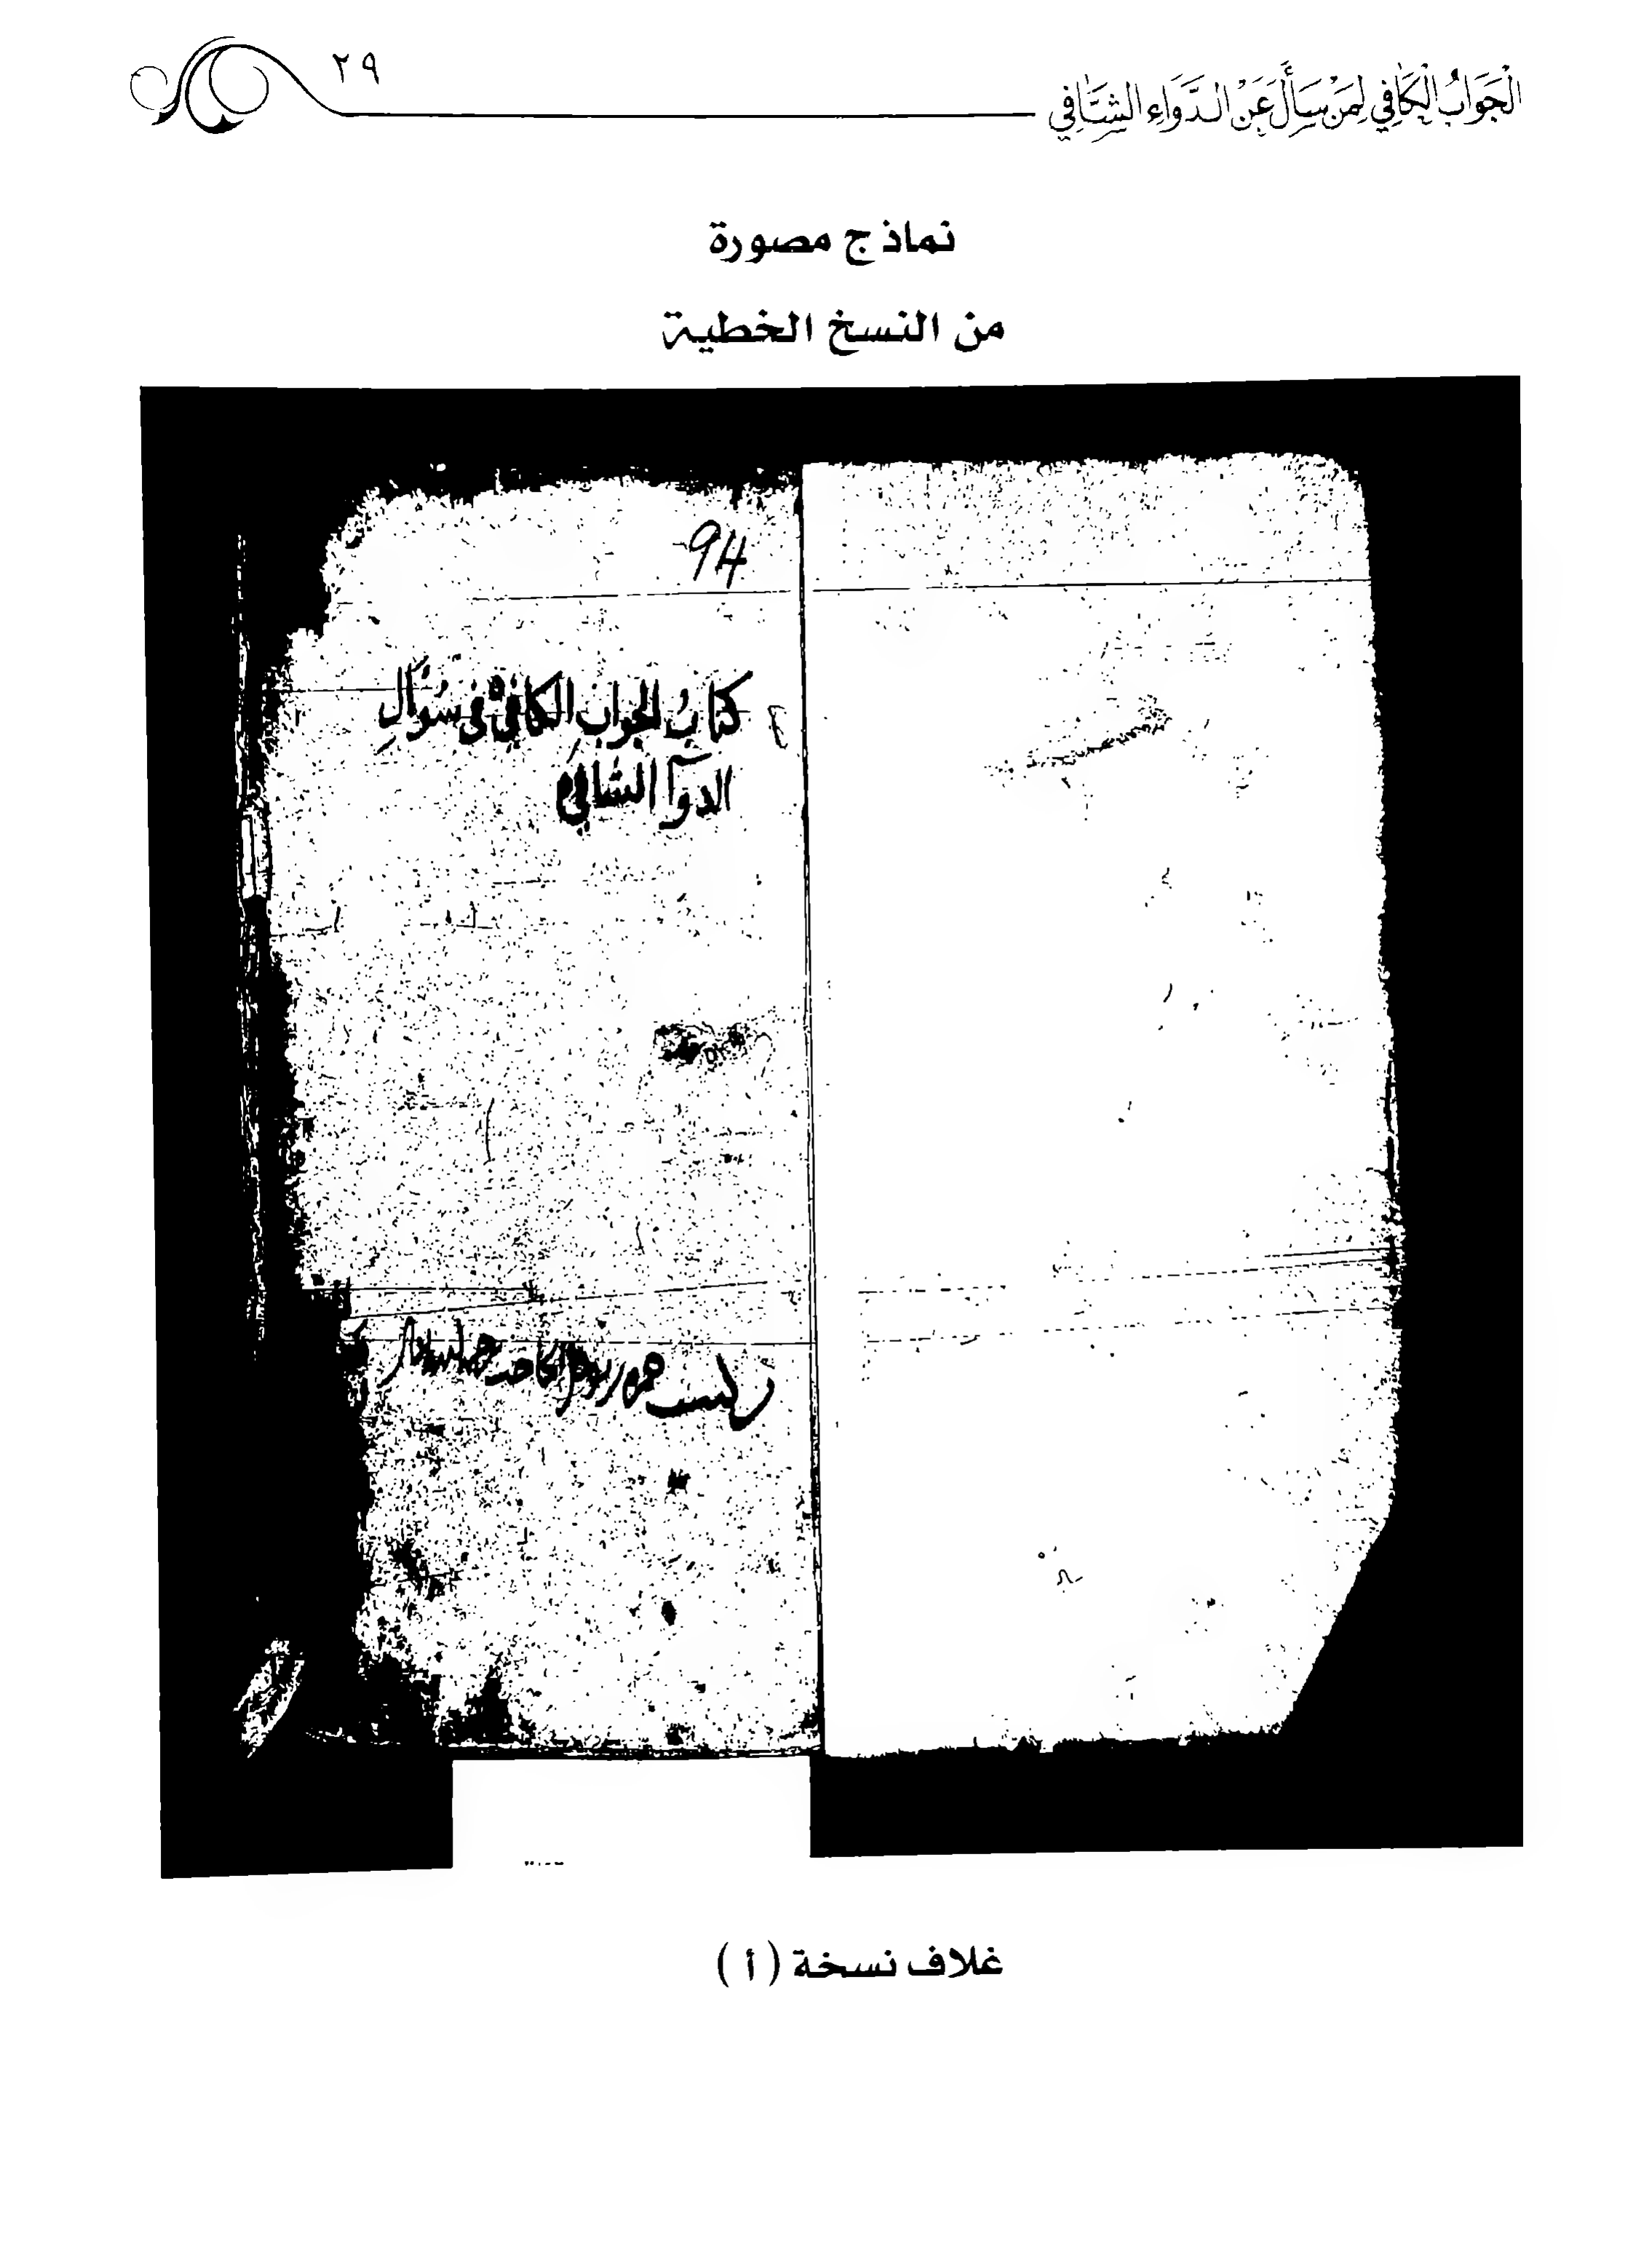 الْجَوَابُ الْكَافِي لِمَنْ سَأَلَ عَنِ الدَّوَاءِ الشَّافِي
٢٩
نماذج مصورة
من النسخ الخطية
94
كتاب الجواب الكافي في سؤال
الدوآ الشافي
غلاف نسخة ( أ )